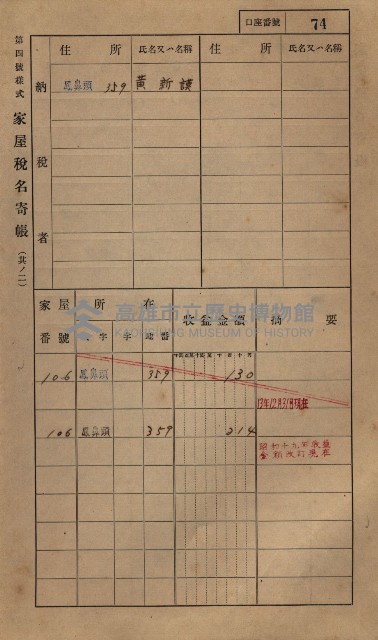 口座番號 74
第四號樣式 家屋稅名寄帳（其ノ二）
納稅者
住所 氏名又ハ名稱 住所 氏名又ハ名稱
鳳鼻頭 359 黄新
高雄市立歷史博物館
KAOHSIUNG MUSEUM OF HISTORY
家屋番號 所在 收益金額 摘要
大字 字 地番
106 鳳鼻頭 359 130
13年12月31日現在
106 鳳鼻頭 359 214
昭和十九年收益
金額改訂現在